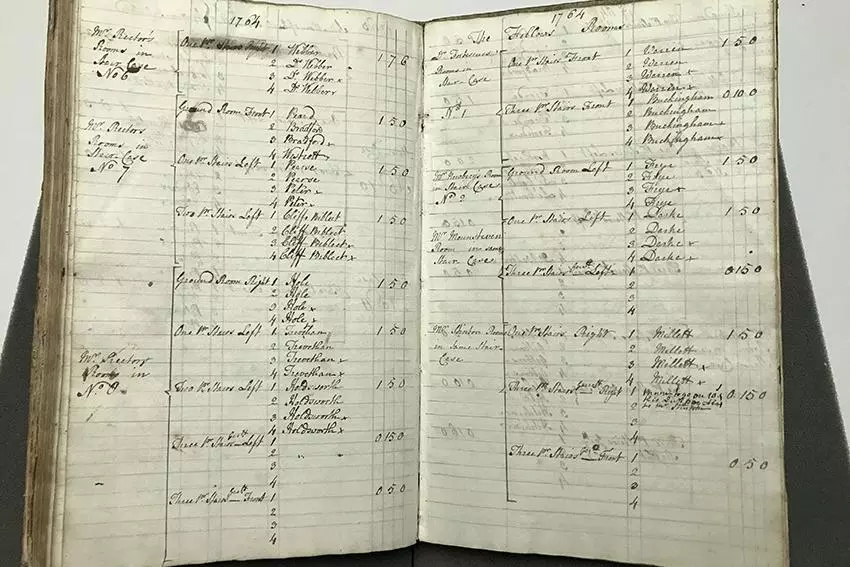 1764
Mr. Rector's
Rooms in
Stair Case
No 6
One Pr. Stairs Right 1 Webber 1 7 6
2 Dr. Webber
3 Dr. Webber x
4 Dr. Webber x
Mr. Rectors
Rooms in
Stair Case
No 7
Ground Room Front 1 Beard 1 5 0
2 Bradford
3 Bradford x
4 Westcott
One Pr. Stairs Left 1 Pearse 1 5 0
2 Pearse
3 Peter x
4 Peter x
Two Pr. Stairs Left 1 1 5 0
2
3
4
Mr. Rector's
Rooms in
No 8
Ground Room Right 1 Hole 1 5 0
2 Hole
3 Hole x
4 Hole x
One Pr. Stairs Left 1 1 5 0
2 Trevethan
3 Trevethan x
4 Trevethan x
Two Pr. Stairs Left 1 Holdsworth 1 5 0
2 Holdsworth
3 Holdsworth x
4 Holdsworth x
Three Pr. Stairs Left 1 0 15 0
2
3
4
Three Pr. Stairs Front 1 0 5 0
2
3
4
1764
The Fellows Rooms
Rooms in
Stair Case
No 1
One Pr. Stairs Front 1 Warren 1 5 0
2 Warren
3 Warren x
4 Warren x
Three Pr. Stairs Front 1 Buckingham 0 10 0
2 Buckingham
3 Buckingham x
4 Buckingham x
Room
in Stair Case
No 2
Ground Room Left 1 1 5 0
2
3
4
Room in same
Stair Case
One Pr. Stairs Left 1 Darke 1 5 0
2 Darke
3 Darke x
4 Darke x
Three Pr. Stairs Left 1 0 15 0
2
3
4
Rooms
in Same Stair
Case
One Pr. Stairs Right 1 Millett 1 5 0
2 Millett
3 Millett x
4 Millett x
Three Pr. Stairs Right 1 0 15 0
2
3
4
Three Pr. Stairs Front 1 0 5 0
2
3
4